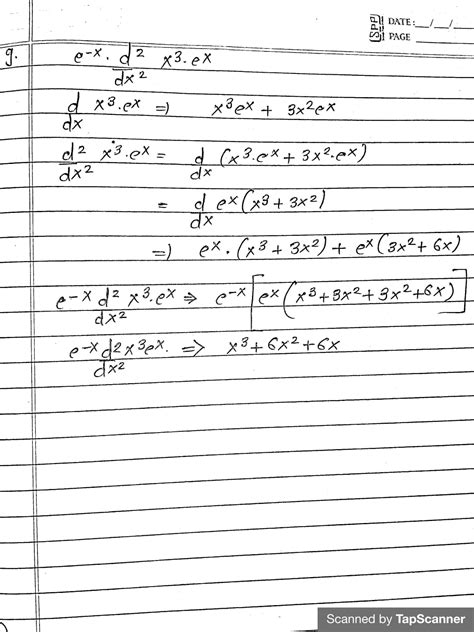 SPP DATE:__/__/__
PAGE
g. e^-x · d²/dx² x³·e^x
d/dx x³·e^x ⇒ x³e^x + 3x²e^x
d²/dx² x³·e^x = d/dx (x³·e^x + 3x²·e^x)
= d/dx e^x (x³ + 3x²)
⇒ e^x · (x³ + 3x²) + e^x (3x² + 6x)
e^-x d²/dx² x³·e^x ⇒ e^-x [e^x (x³ + 3x² + 3x² + 6x)]
e^-x d²/dx² x³e^x. ⇒ x³ + 6x² + 6x
Scanned by TapScanner